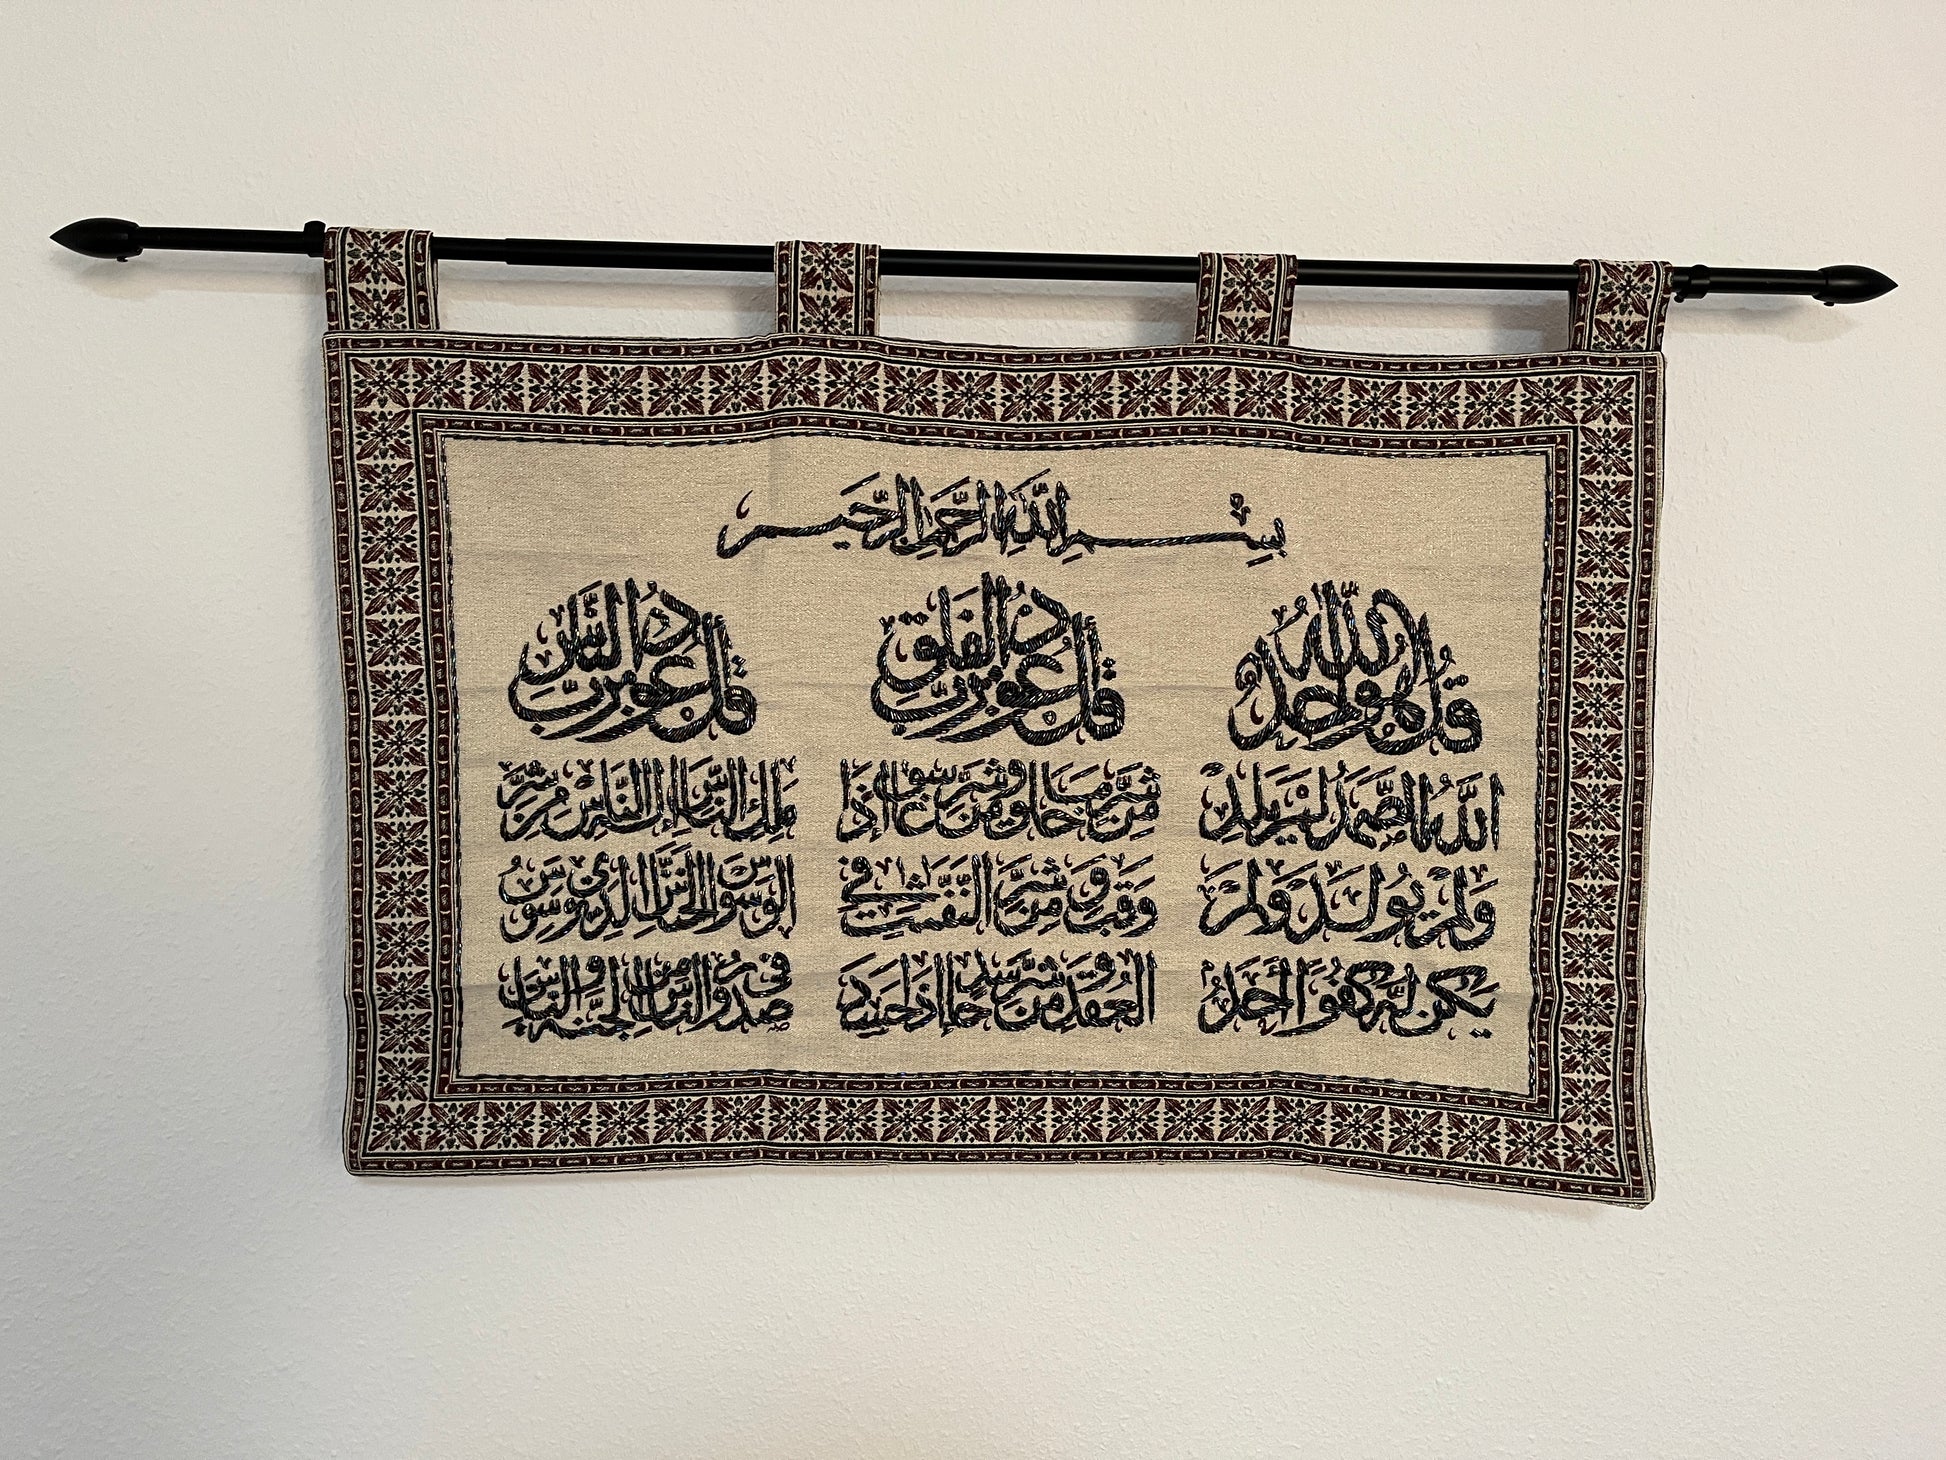 بِسْمِ اللَّهِ الرَّحْمَنِ الرَّحِيمِ
قُلْ هُوَ اللَّهُ أَحَدٌ
اللَّهُ الصَّمَدُ لَمْ يَلِدْ
وَلَمْ يُولَدْ وَلَمْ
يَكُنْ لَهُ كُفُوًا أَحَدٌ
قُلْ أَعُوذُ بِرَبِّ الْفَلَقِ
مِنْ شَرِّ مَا خَلَقَ وَمِنْ شَرِّ غَاسِقٍ إِذَا
وَقَبَ وَمِنْ شَرِّ النَّفَّثَتِ فِي
الْعُقَدِ وَمِنْ شَرِّ حَاسِدٍ إِذَا حَسَدَ
قُلْ أَعُوذُ بِرَبِّ النَّاسِ
مَلِكِ النَّاسِ إِلَهِ النَّاسِ مِنْ شَرِّ
الْوَسْوَاسِ الْخَنَّاسِ الَّذِي يُوَسْوِسُ
فِي صُدُورِ النَّاسِ مِنَ الْجِنَّةِ وَالنَّاسِ